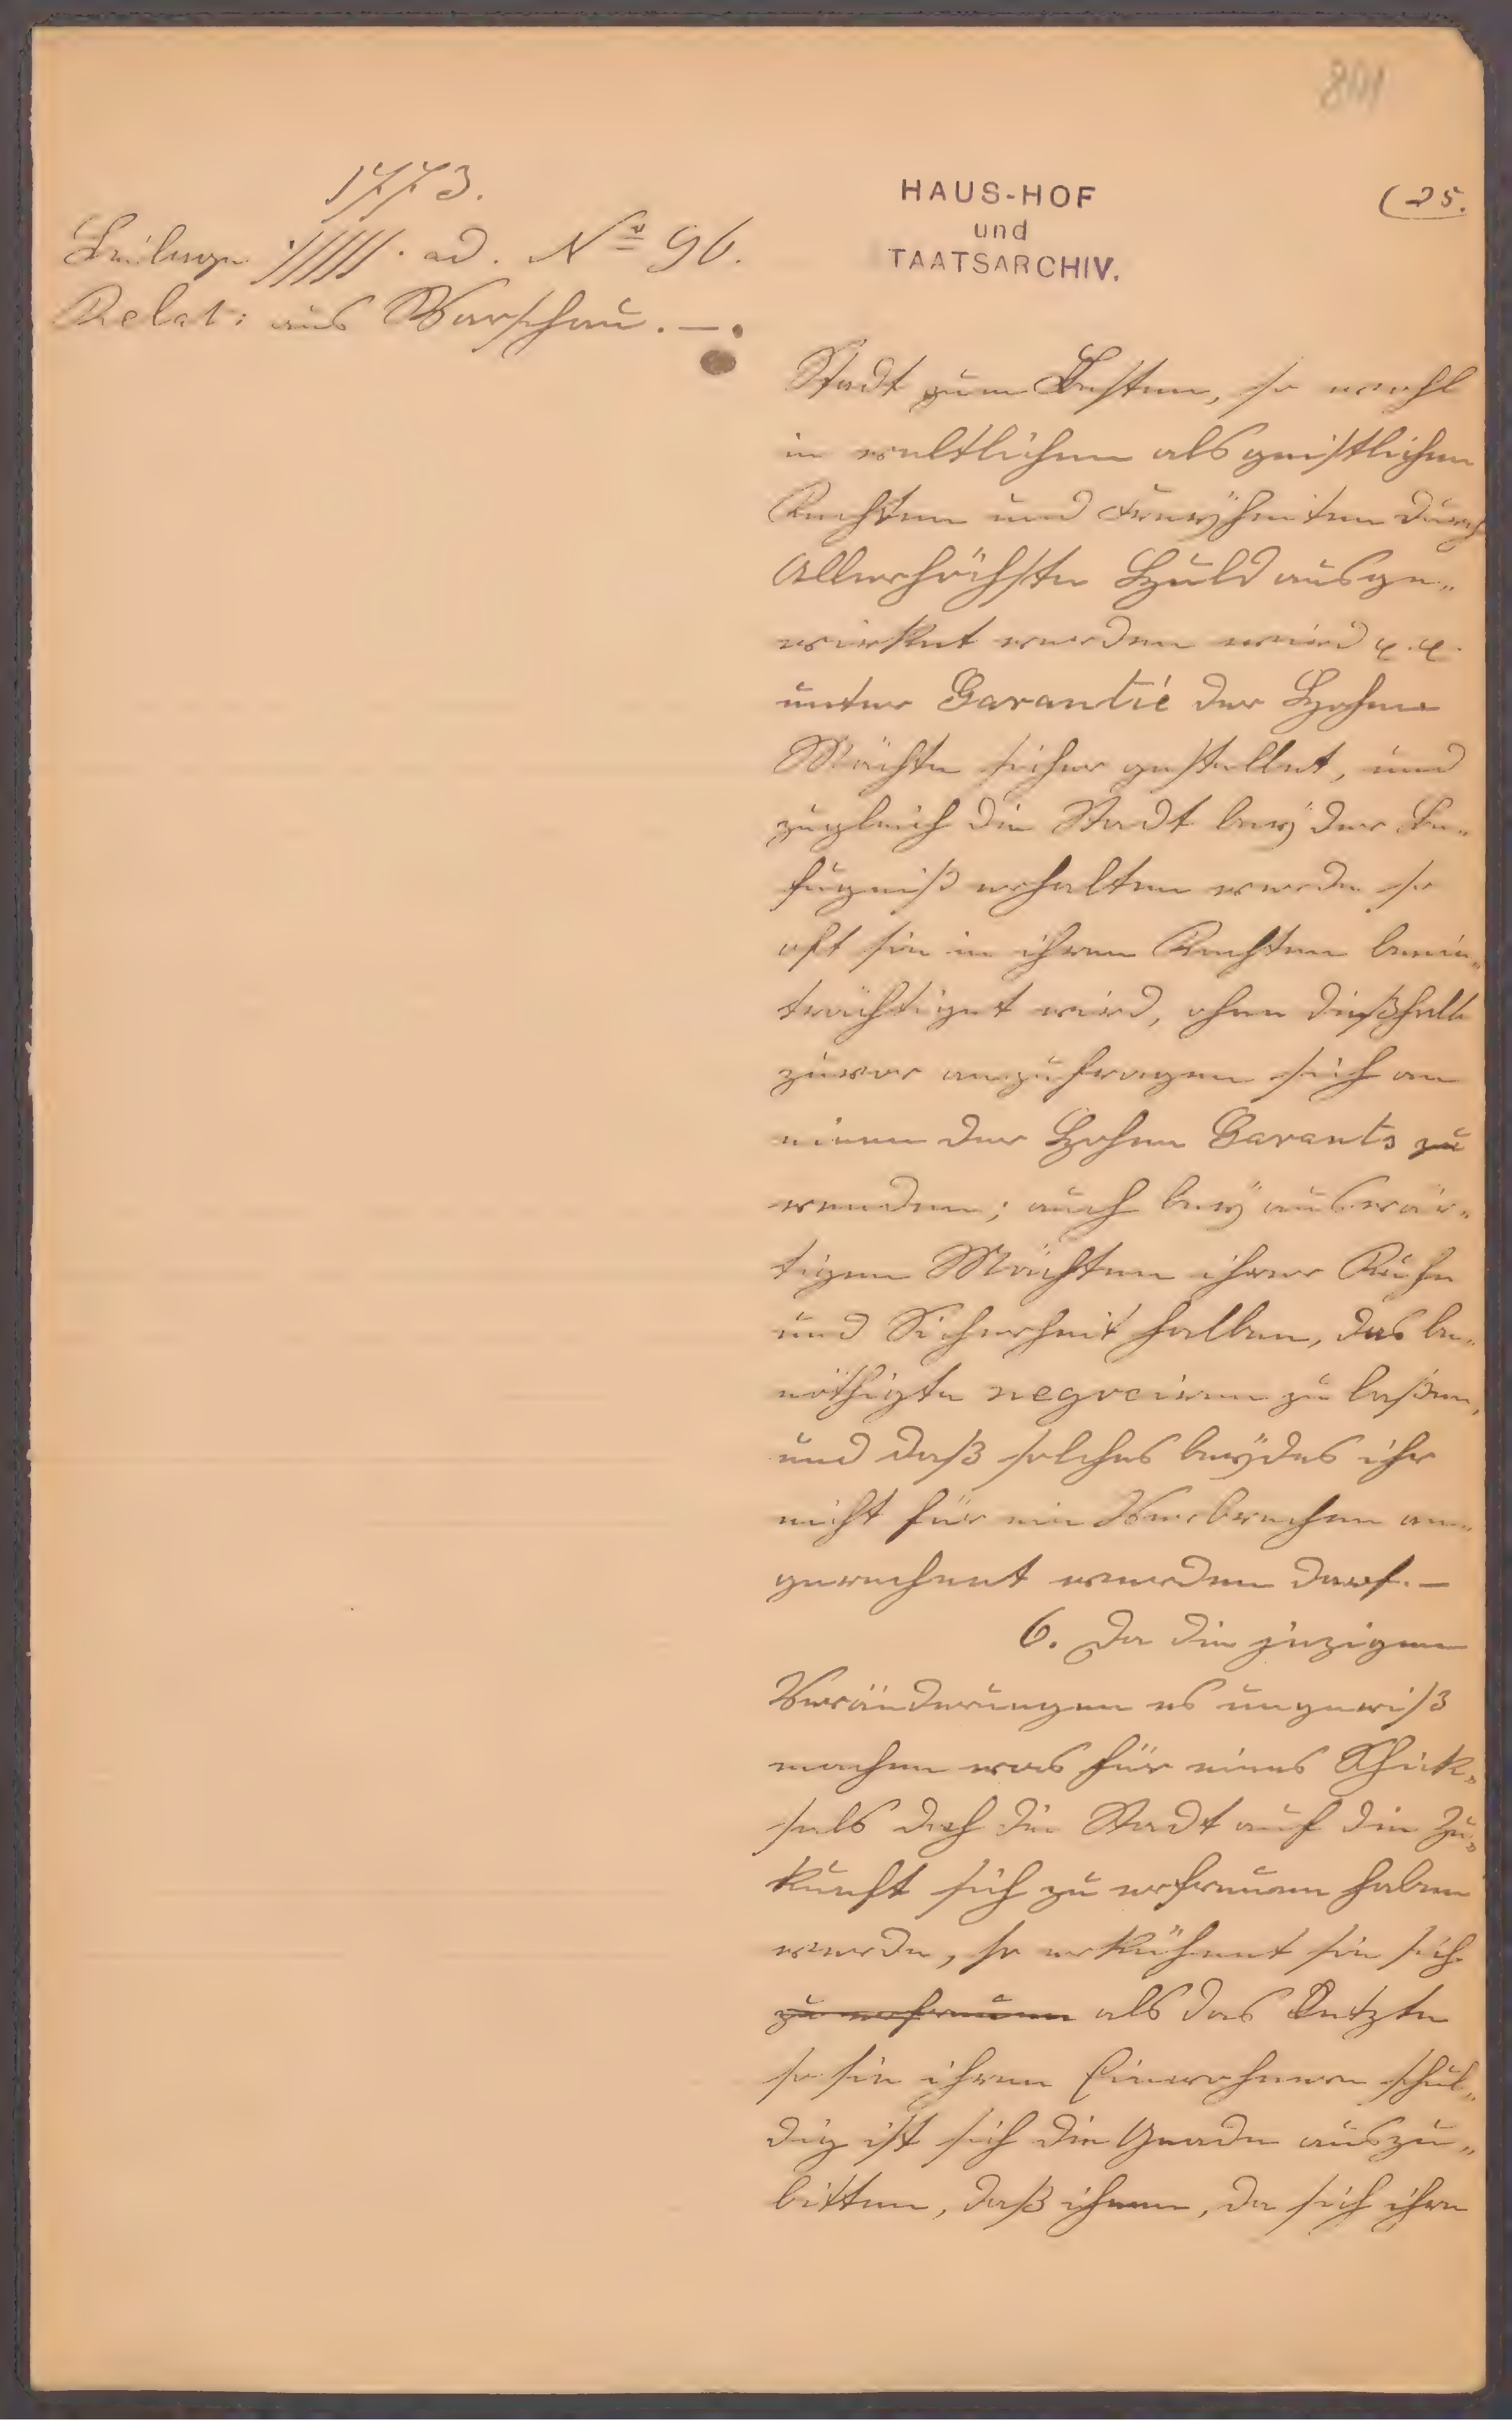 1773.
Beilage ·/////· ad. No 96.
Relat: aus Warschau. —.
HAUS-HOF
und
TAATSARCHIV.
(25.
Stadt zum Besten, so wohl
in weltlichen als geistlichen
Rechten und Freyheiten durch
Allerhöchste Huld ausge„
wirket werden wird
unter Garantie der Hohen
Mächte sicher gestellet, und
zugleich die Stadt bey der Be„
fugniß erhalten werde so
oft sie in ihren Rechten beein„
trächtiget wird, ohne dießhalb
zuvor anzufragen sich an
einen der Hohen Garants zu
wenden; auch bey auswär„
tigen Mächten ihrer Ruhe
und Sicherheit halben, das be„
nöthigte negociren zu laßen,
und daß solches beydes ihr
nicht für ein Verbrechen an„
gerechnet werden darf. —
6. Da die jezigen
Veränderungen es ungewiß
machen was für eines Schick„
sals doch die Stadt auf die Zu„
kunft sich zu erfreuen haben
werde, so erkühnet sie sich
zu erfreuen als das Letzte
so sie ihren Einwohnern schul„
dig ist sich die Gnade auszu„
bitten, daß ihnen, da sich ihre